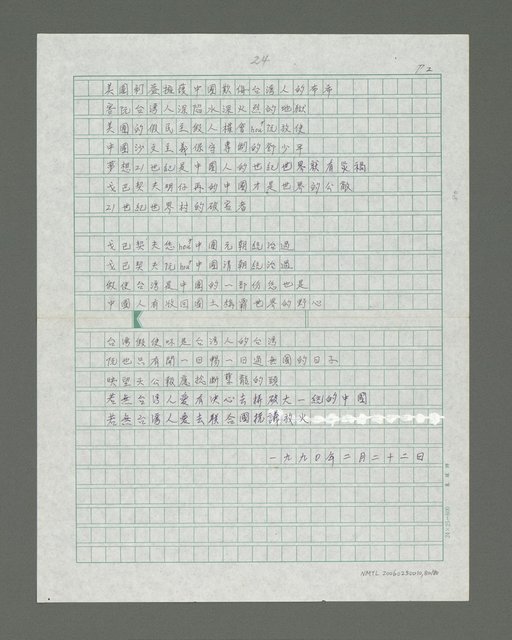 24
P2
美國利益擁護中國欺侮台湾人的布市
害阮台湾人深陷水深火烈的地獄
美國的假民主假人權會hou阮放使
中國沙文主義保守專制的鄧少平
夢想21世紀是中國人的世紀世界就有災禍
戈巴契夫明仔再的中國才是世界的公敵
21世紀世界村的破害者
戈巴契夫您hou中國元朝統治過
戈巴契夫阮hou中國清朝統治過
假使台湾是中國的一部份您也是
中國人有收回國土稱霸世界的野心
台湾假使呣是台湾人的台湾
阮也只有閒一日暢一日過無國的日子
映望天公報應捻斷雙龍的頭
若無台湾人愛有決心去拼破大一統的中國
若無台湾人愛去聯合國抗議放火
一九九〇年二月二十二日
24×25=600
NMTL 20060250010